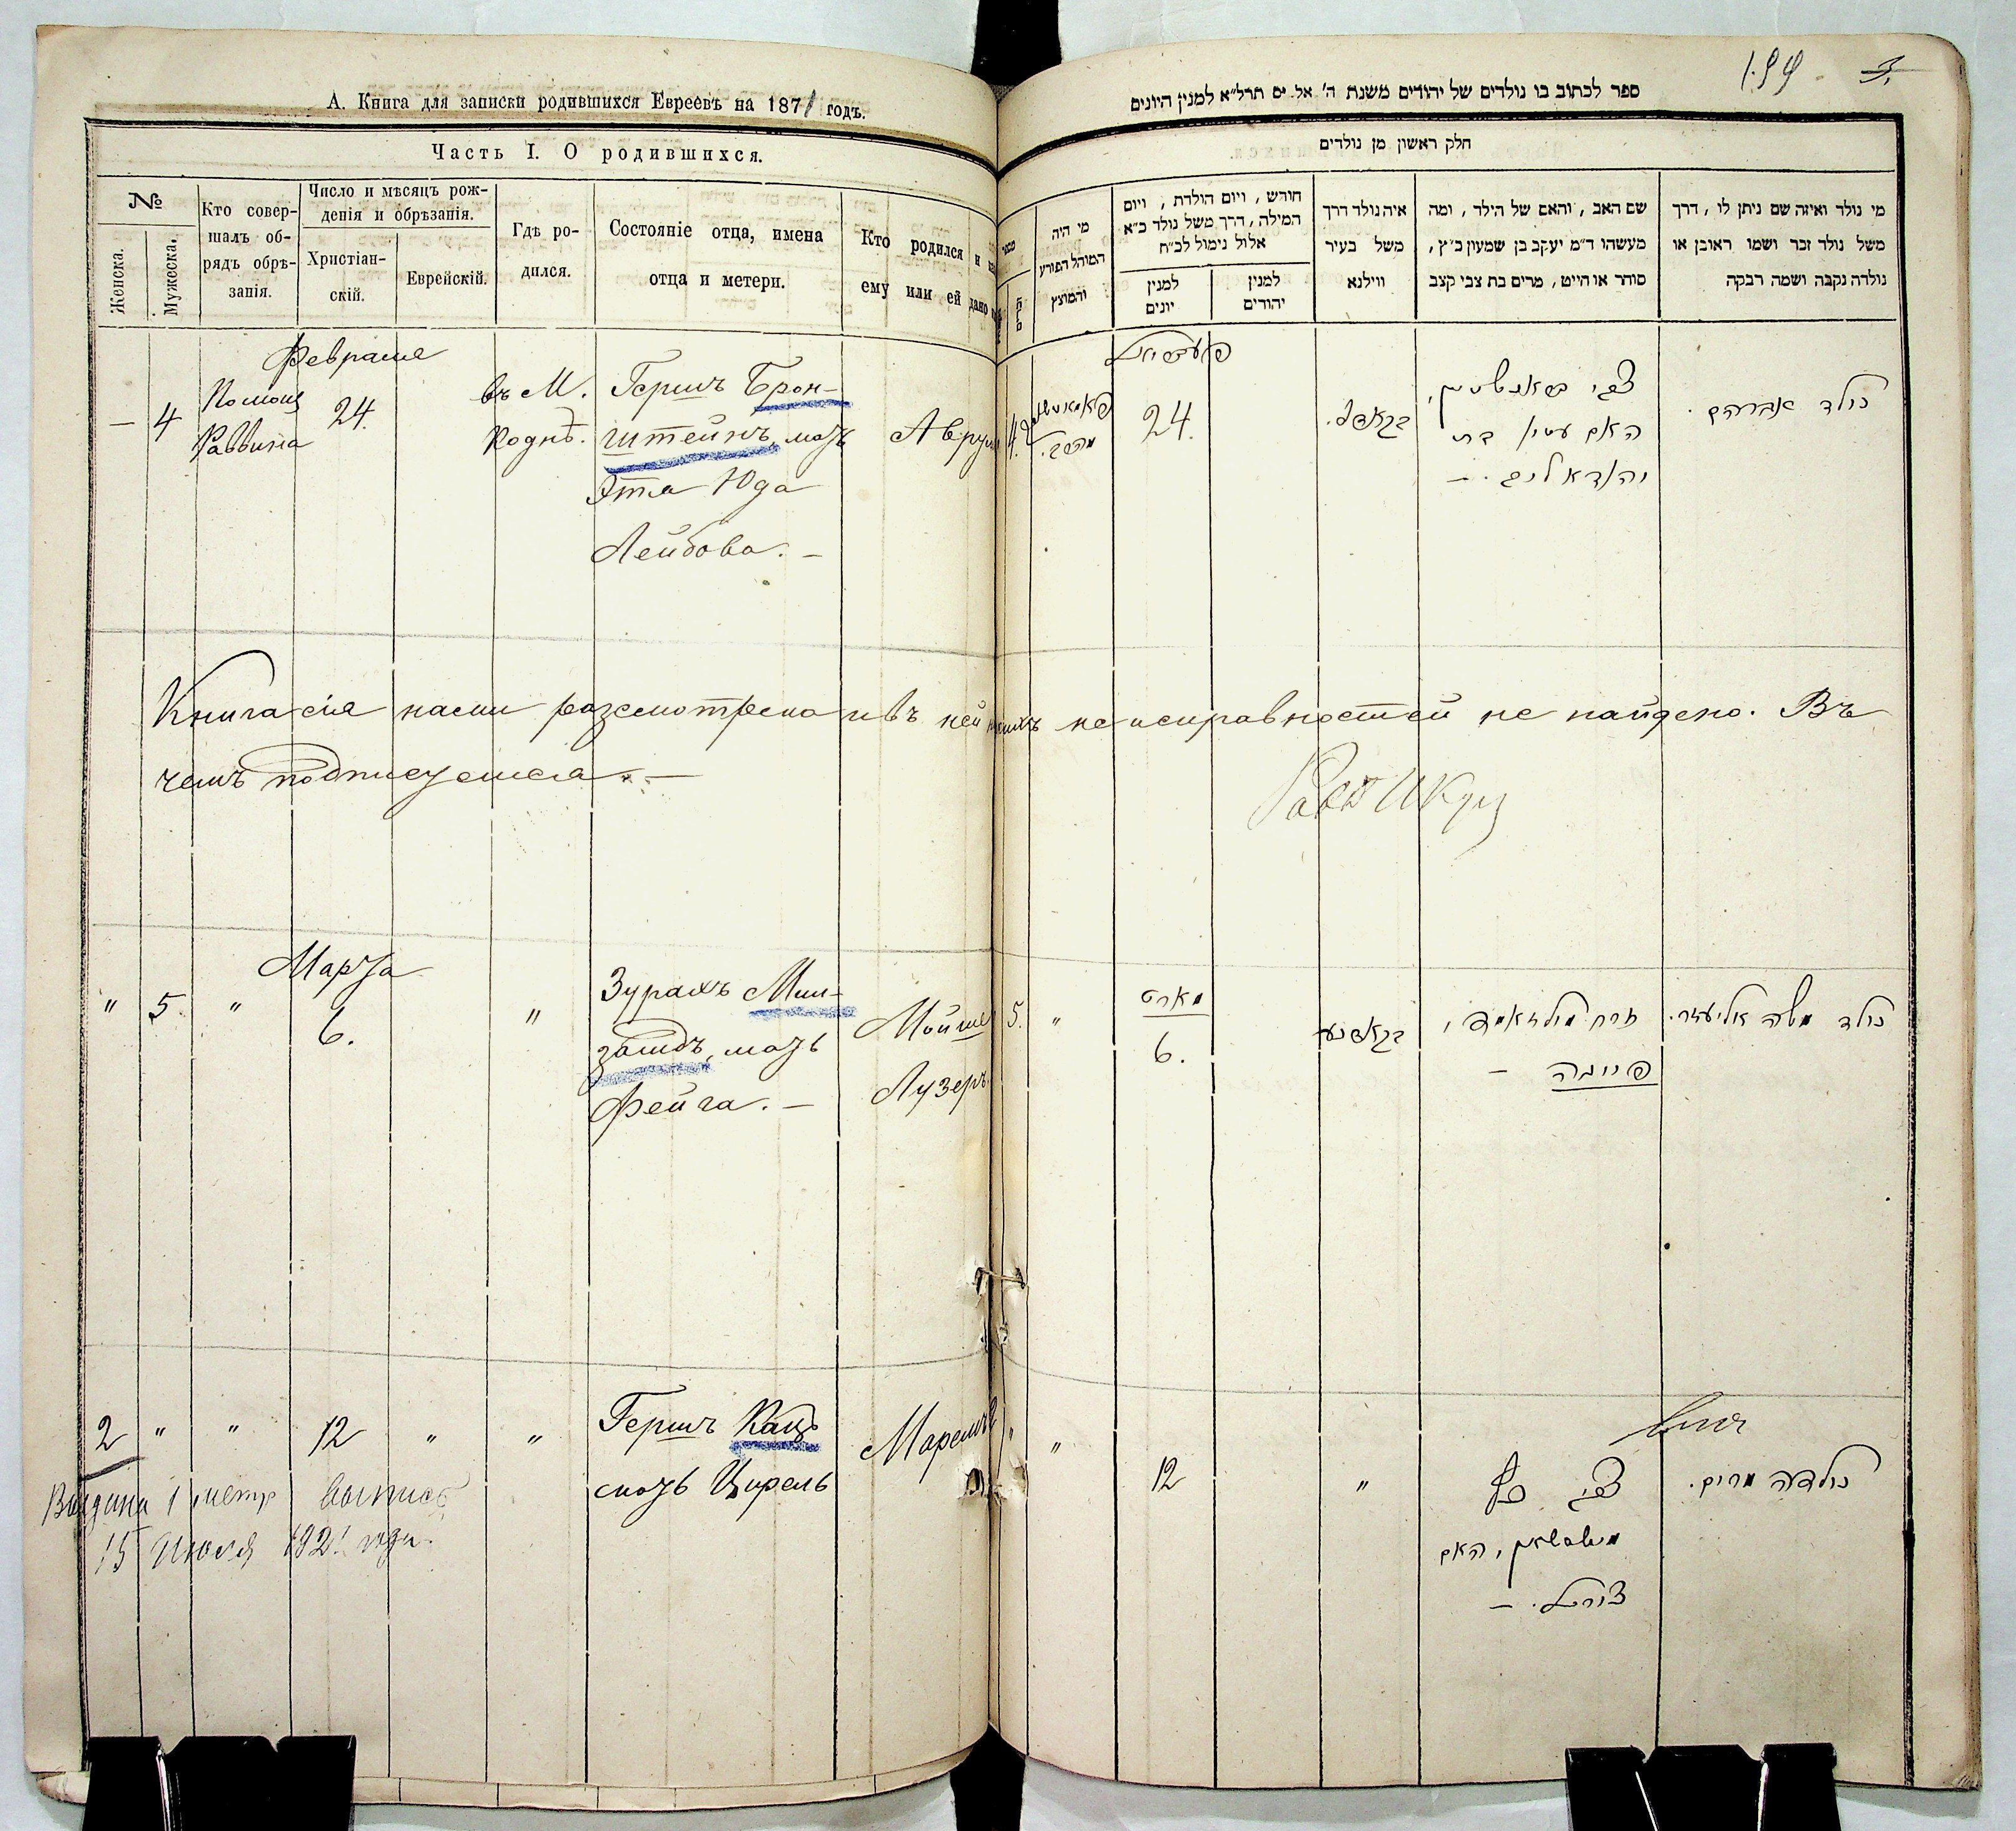 А. Книга для записки родившихся Евреевъ на 1871 годъ.
Часть I. О родившихся.
№
Женска.
Мужеска.
Кто совер-
шалъ об-
рядъ обрѣ-
занія.
Число и мѣсяцъ рож-
денія и обрѣзанія.
Христіан-
скій.
Еврейскій.
Гдѣ ро-
дился.
Состояніе отца, имена
отца и метери.
Кто родился и
ему или ей дано
Февраля
— 4
Помощ
Раввина
24.
въ М.
Коднѣ.
Гершъ Брон-
штейнъ, мать
Эта Юда
Лейбова. —
Аврум
Книга сія нами разсмотрена и въ ней неисправностей не найдено. Въ
чемъ подписуемся. —
Марта
" 5 " 6. "
Зурахъ Мил-
замдъ, мать
Фейга. —
Мойше
Лузеръ
2 " " 12 " "
Гершъ Кацъ
мать Цирель
Выдана 1 метр выпись
15 Июля 1921 года.
199
3.
ספר לכתוב בו נולדים של יהודים משנת ה' אל. ים תרל"א למנין היונים
חלק ראשון מן נולדים
מי היה
המוהל הפורע
והמוצץ
חורש, ויום הולדת, ויום
המילה, דרך משל נולד כ"א
אלול נימול לכ"ח
למנין
יונים
למנין
יהודים
איה נולד דרך
משל בעיר
ווילנא
שם האב, והאם של הילד, ומה
מעשהו ד"מ יעקב בן שמעון כ"ץ,
סוחר או חייט, מרים בת צבי קצב
מי נולד ואיזה שם ניתן לו, דרך
משל נולד זכר ושמו ראובן או
נולדה נקבה ושמה רבקה
4.
24.
צבי בראנשטיין,
האם עטיא בת
יהודא ליב. —
נולד אברהם.
5. "
מארט
6.
זרח מילזאמד,
פייגה —
נולד משה אליעזר.
" "
12
"
צבי כץ
האם
צירל. —
נולדה מרים.